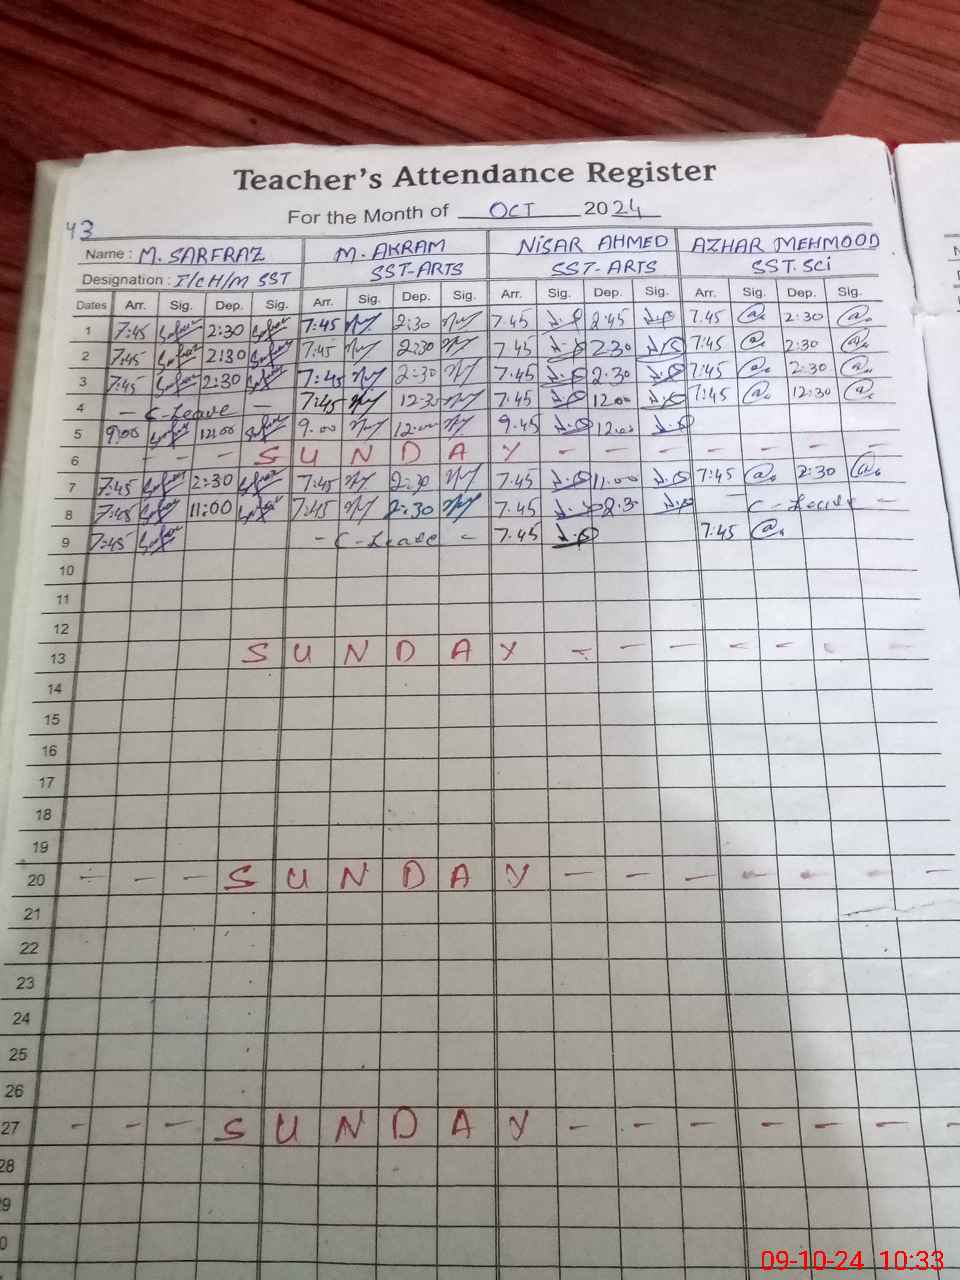 Teacher's Attendance Register
For the Month of OCT 2024
43
Name : M. SARFRAZ M. AKRAM NISAR AHMED AZHAR MEHMOOD
Designation : I/cH/M SST SST-ARTS SST-ARTS SST.SCi
Dates Arr. Sig. Dep. Sig. Arr. Sig. Dep. Sig. Arr. Sig. Dep. Sig. Arr. Sig. Dep. Sig.
1 7:45 2:30 7:45 2:30 7.45 2.45 7.45 2:30
2 7:45 2:30 7:45 2:30 7.45 2.30 7:45 2:30
3 7:45 2:30 7:45 2:30 7.45 2.30 7:45 2:30
4 - C-Leave - 7:45 12:30 7.45 12.00 7:45 12:30
5 9:00 12:00 9.00 12:00 9.45 12.00
6 - - - SUNDAY - - - - - - -
7 7:45 2:30 7:45 2:30 7.45 11.00 7:45 2:30
8 7:45 11:00 7:45 2:30 7.45 - C-Leave -
9 7:45 - C-Leave - 7.45 7:45
10
11
12
13 SUNDAY - - - - - - -
14
15
16
17
18
19
20 - - - SUNDAY - - - - - - -
21
22
23
24
25
26
27 - - - SUNDAY - - - - - - -
28
9
0
09-10-24 10:33